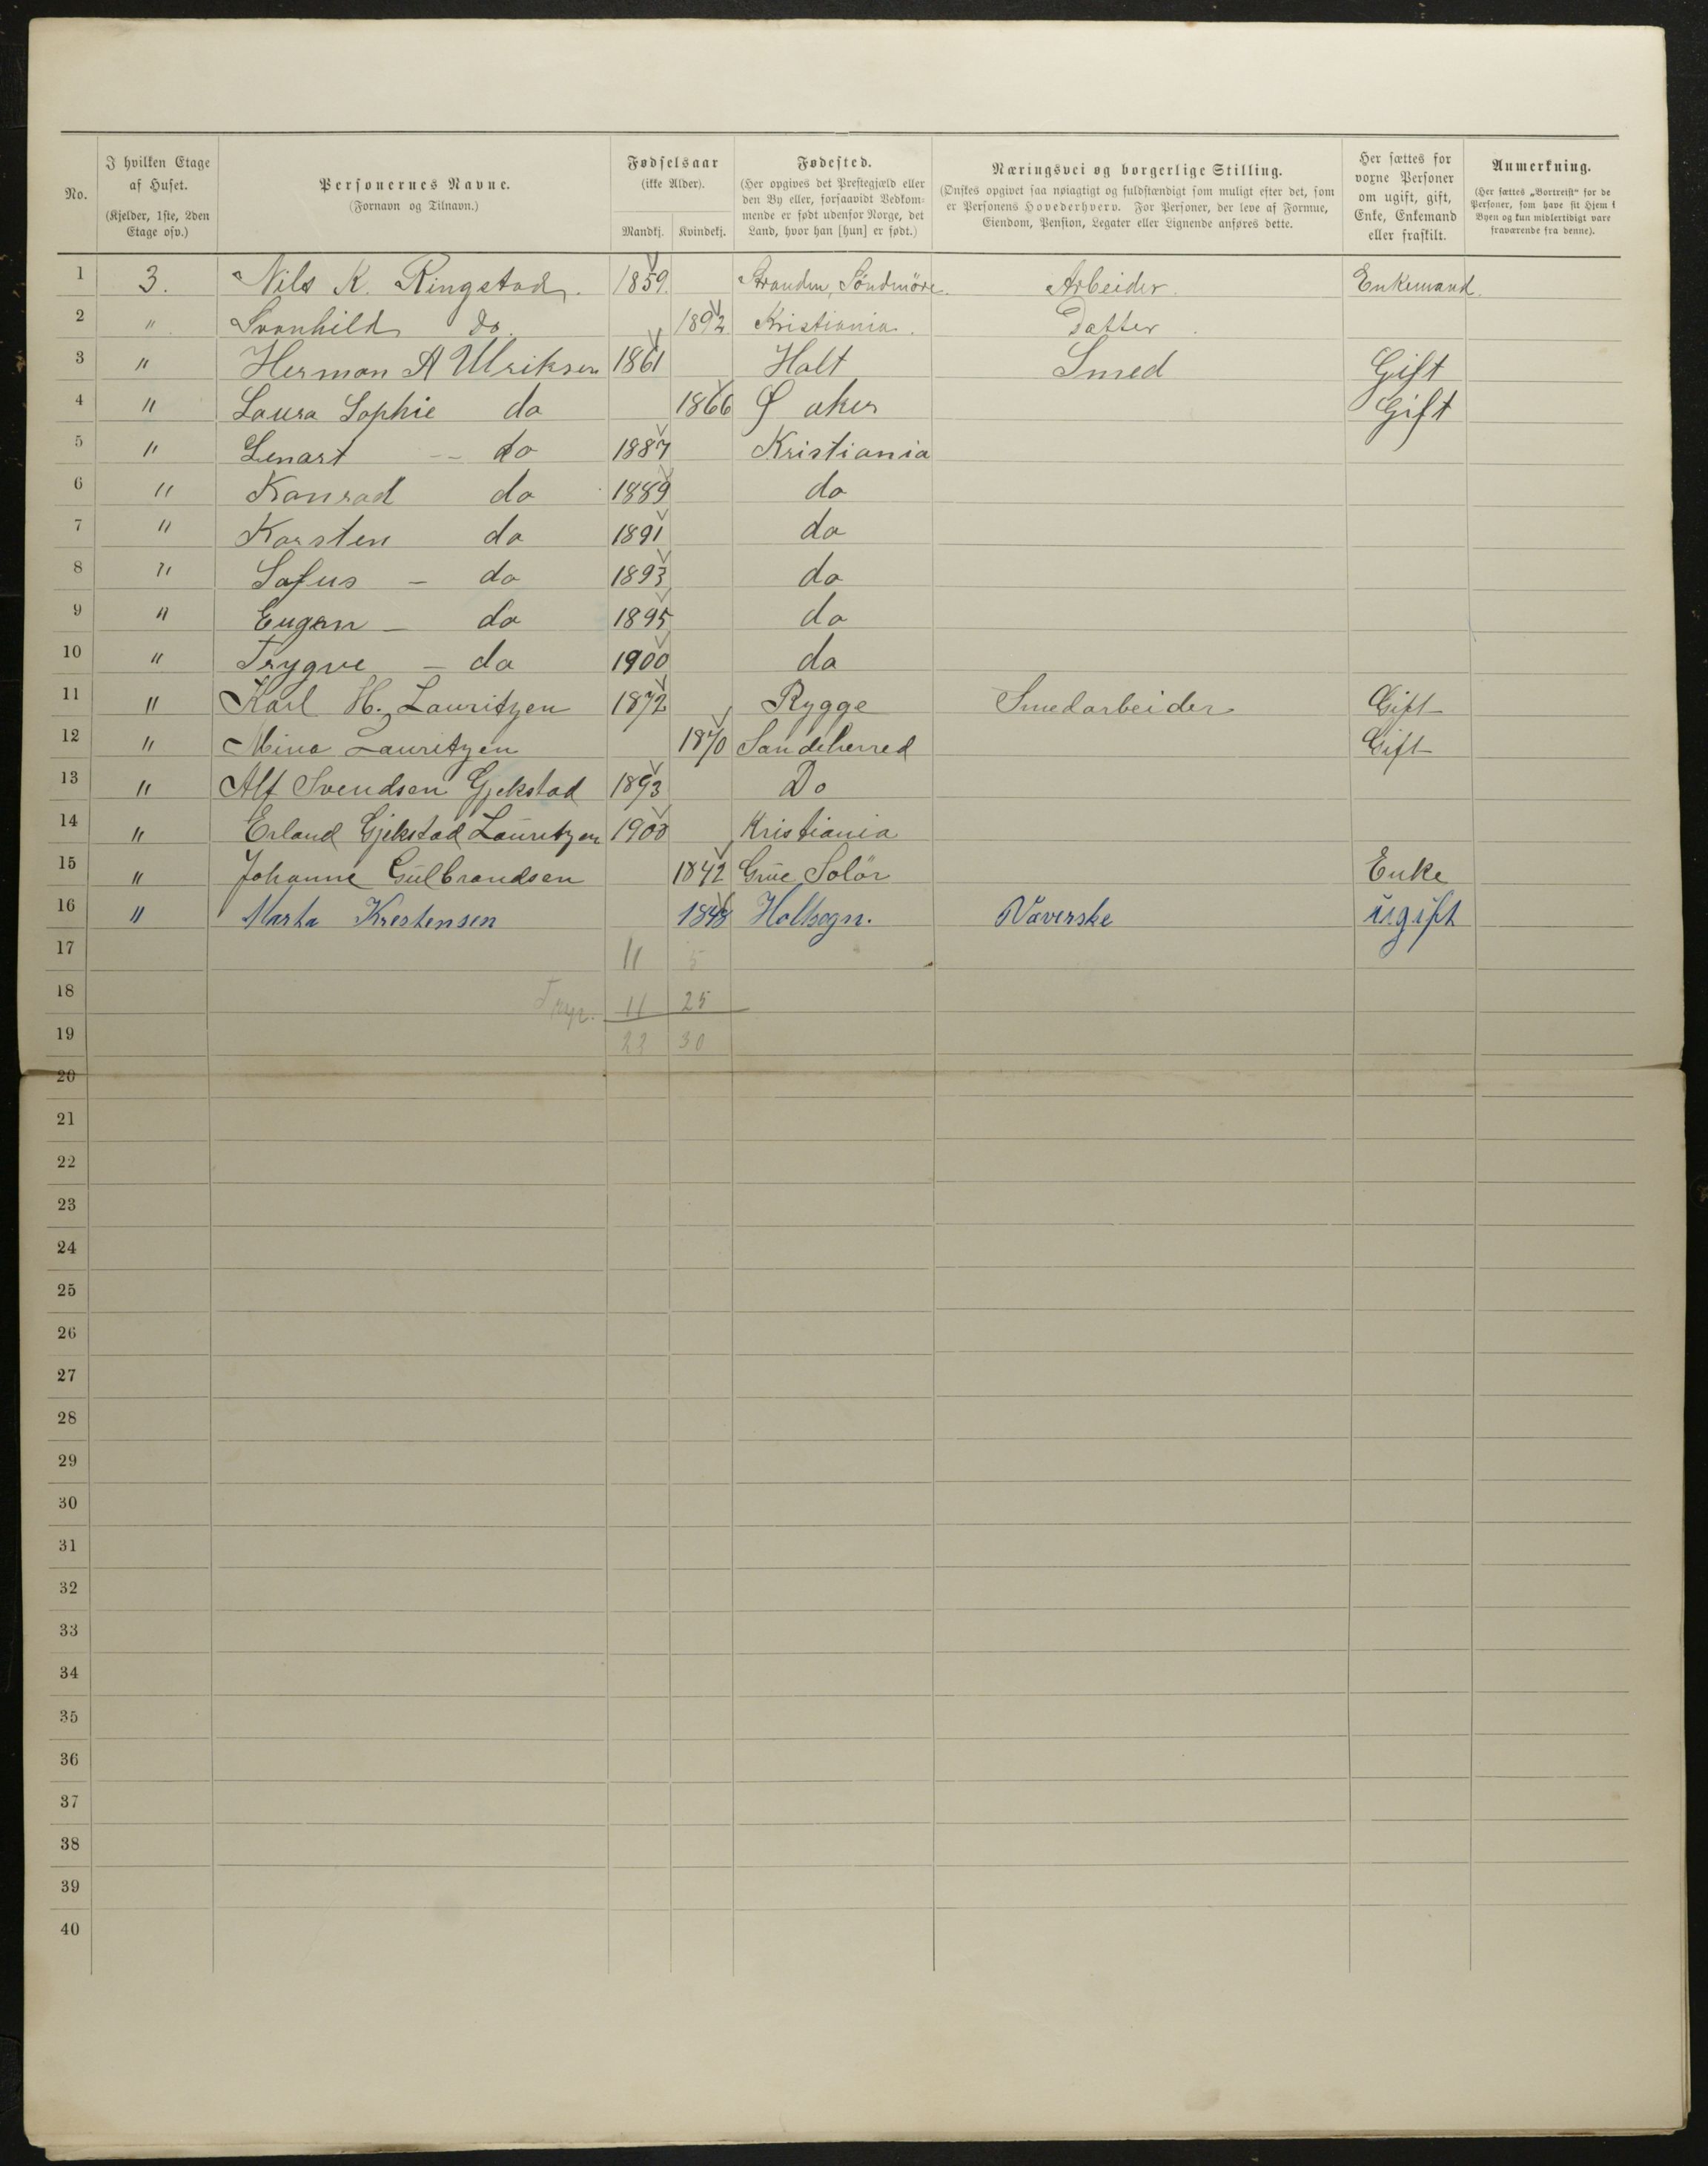 No. I hvilken Etage af Huset. (Kjelder, 1ste, 2den Etage osv.) Personernes Navne. (Fornavn og Tilnavn.) Fødselsaar (ikke Alder). Mandkj. Kvindekj. Fødested. (Her opgives det Prestegjæld eller den By eller, forsaavidt Vedkommende er født udenfor Norge, det Land, hvor han [hun] er født.) Næringsvei og borgerlige Stilling. (Ønskes opgivet saa nøiagtigt og fuldstændigt som muligt efter det, som er Personens Hovederhverv. For Personer, der leve af Formue, Eiendom, Pension, Legater eller Lignende anføres dette. Her sættes for voxne Personer om ugift, gift, Enke, Enkemand eller fraskilt. Anmerkning. (Her sættes „Bortreist“ for de Personer, som have sit Hjem i Byen og kun midlertidigt vare fraværende fra denne).
1 3. Nils K. Ringstad. 1859. Stranden, Söndmöre. Arbeider. Enkemand.
2 " Svanhild do. 1892 Kristiania. Datter.
3 " Herman A Ulriksen 1861 Holt Smed Gift
4 " Laura Sophie do 1866 Ø aker Gift
5 " Lenart -- do 1887 Kristiania
6 " Konrad do 1889 do
7 " Karsten do 1891 do
8 " Sofus - do 1893 do
9 " Eugen - do 1895 do
10 " Trygve - do 1900 do
11 " Karl H. Lauritzen 1872 Rygge Smedarbeider Gift
12 " Mina Lauritzen 1870 Sandeherred Gift
13 " Alf Svendsen Gjekstad 1893 Do
14 " Erland Gjekstad Lauritzen 1900 Kristiania
15 " Johanne Gulbrandsen 1842 Grue Solör Enke
16 " Marta Kristensen 1848 Holtsogn. Væverske ugift
17 11 5
18 11 25
19 22 30
20
21
22
23
24
25
26
27
28
29
30
31
32
33
34
35
36
37
38
39
40